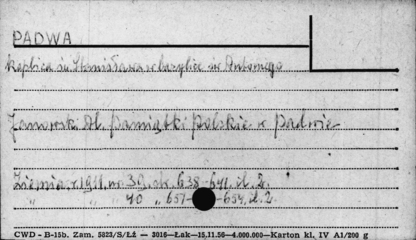 PADWA
kaplica św. Stanisława w bazylice św. Antoniego
Janowski Al. Pamiątki polskie w Padwie
Ziemia r. 1911, nr. 39, str. 638-641, il. 2.
" " 40 " 657- -659, il. 2.
CWD - B-15b. Zam. 5822/S/Lź — 3016—Łak—15.11.56—4.000.000—Karton kl. IV A1/200 g